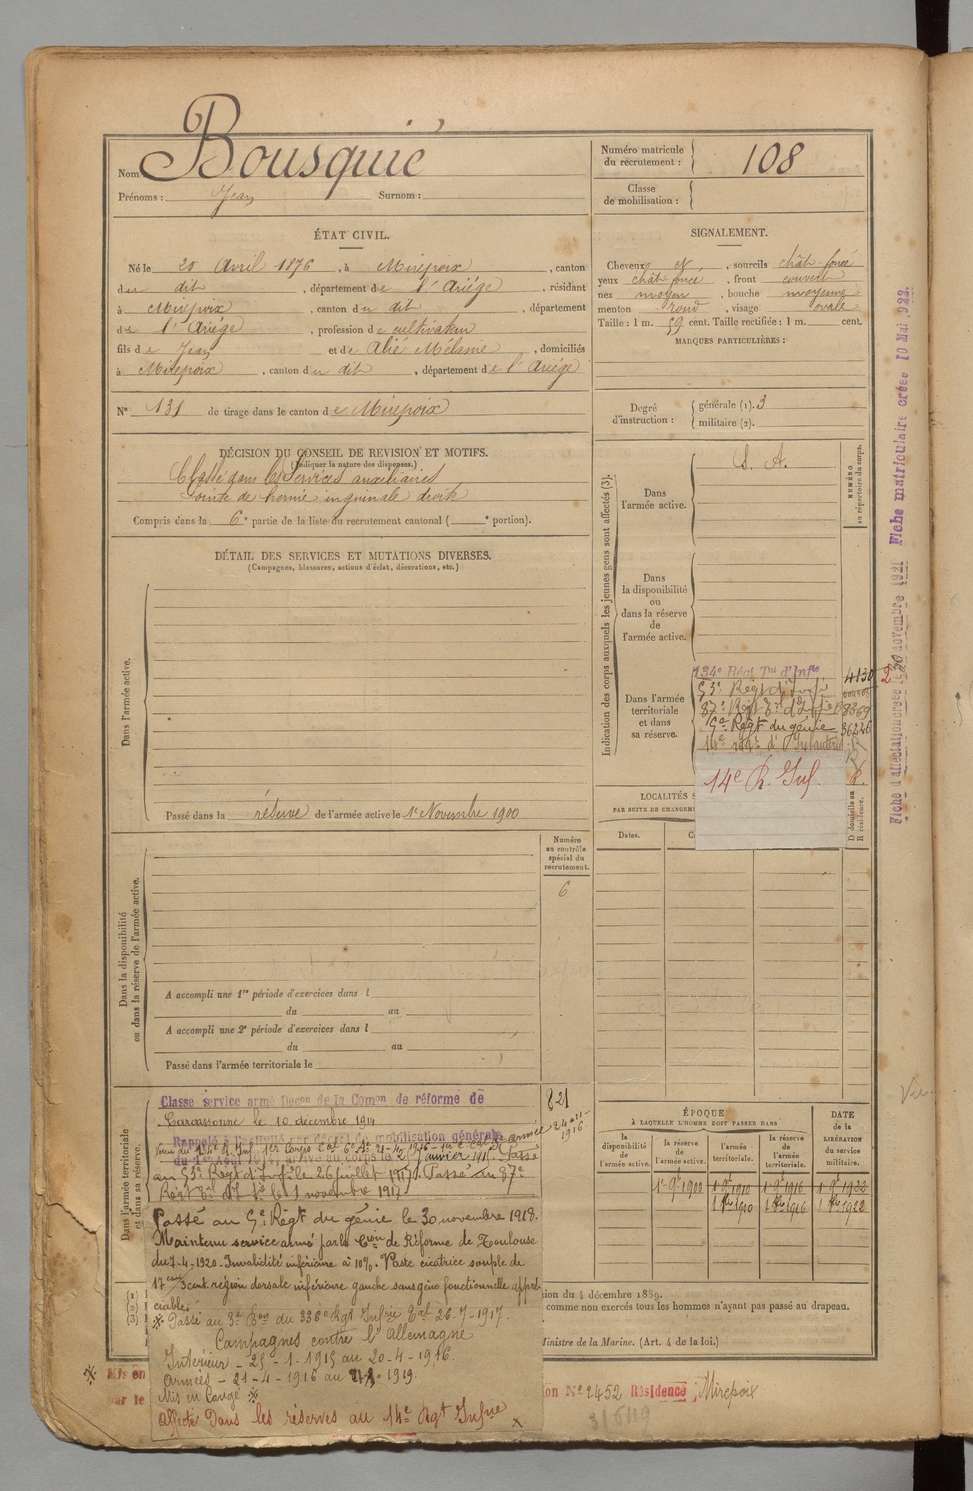 Nom Bousquié
Prénoms : Jean Surnom :
Numéro matricule du recrutement : 108
Classe de mobilisation :
ÉTAT CIVIL.
Né le 20 Avril 1876, à Mirepoix, canton
du dit, département de l'Ariège, résidant
à Mirepoix, canton du dit, département
de l'Ariège, profession de cultivateur
fils de Jean et de Alié Mélanie, domiciliés
à Mirepoix, canton du dit, département de l'Ariège
N° 131 de tirage dans le canton de Mirepoix
SIGNALEMENT.
Cheveux N, sourcils chât. foncé
yeux chât foncé, front couvert
nez moyen, bouche moyenne
menton rond, visage ovale
Taille : 1 m. 59 cent. Taille rectifiée : 1 m. cent.
MARQUES PARTICULIÈRES :
Degré d'instruction : générale (1). 3
militaire (2).
DÉCISION DU CONSEIL DE REVISION ET MOTIFS.
(Indiquer la nature des dispenses.)
Classé dans les Services auxiliaires
Pointe de hernie inguinale droite
Compris dans la 6e partie de la liste du recrutement cantonal ( e portion).
DÉTAIL DES SERVICES ET MUTATIONS DIVERSES.
(Campagnes, blessures, actions d'éclat, décorations, etc.)
Dans l'armée active.
Passé dans la réserve de l'armée active le 1er Novembre 1900
Indication des corps auxquels les jeunes gens sont affectés (3).
NUMÉRO au répertoire du corps.
Dans l'armée active.
S. A.
Dans la disponibilité ou dans la réserve de l'armée active.
Dans l'armée territoriale et dans sa réserve.
134e Régt Tal d'Infie 4130
53e Régt d'Infie
87e Régt d'Infie 8369
5e Régt du génie 36246
14e régt d'Infanterie
14e R. Inf. R.
LOCALITÉS
PAR SUITE DE CHANGEM
D domicile ou R résidence.
Dates.
Fiche d'affectation créée le 30 novembre 1921 Fiche matriculaire créée 10 Mai 1922.
Dans la disponibilité ou dans la réserve de l'armée active.
Numéro au contrôle spécial du recrutement.
6
A accompli une 1re période d'exercices dans l
du au
A accompli une 2e période d'exercices dans l
du au
Passé dans l'armée territoriale le
Dans l'armée territoriale et dans sa réserve.
821
Classe service armé Décon de la Comon de réforme de
Carcassonne le 10 décembre 1914
Rappelé à l'activité par décret de mobilisation générale
au 53e Régt d'Infie le 26 juillet 1917. Passé au 87e
Régt 1 novembre 1917
Passé au 5e Régt du génie le 30 novembre 1918.
Maintenu service armé par la Cion de Réforme de Toulouse
du 7-4-1920. Invalidité inférieure à 10%. Vaste cicatrice souple de
17 cent/3 cent. région dorsale inférieure gauche sans gêne fonctionnelle appré-
ciable.
※ Passé au 3e Bon du 336e Rgt Infrie Tal 26-7-1917.
Campagnes contre l'Allemagne
Intérieur - 25-1-1915 au 20-4-1916.
Armées - 21-4-1916 au 1919.
Mis en congé ※
Affecté dans les réserves au 14e Rgt Infrie
ÉPOQUE
À LAQUELLE L'HOMME DOIT PASSER DANS
la disponibilité de l'armée active.
la réserve de l'armée active.
l'armée territoriale.
la réserve de l'armée territoriale.
DATE de la LIBÉRATION du service militaire.
1er 9bre 1900 1er 9bre 1910 1er 9bre 1916 1er 9bre 1922
1er 8bre 1910 1er 8bre 1916 1er 8bre 1922
ion du 4 décembre 1889.
comme non exercés tous les hommes n'ayant pas passé au drapeau.
Ministre de la Marine. (Art. 4 de la loi.)
※ Mis en
par le
on N° 2452 Résidence Mirepoix